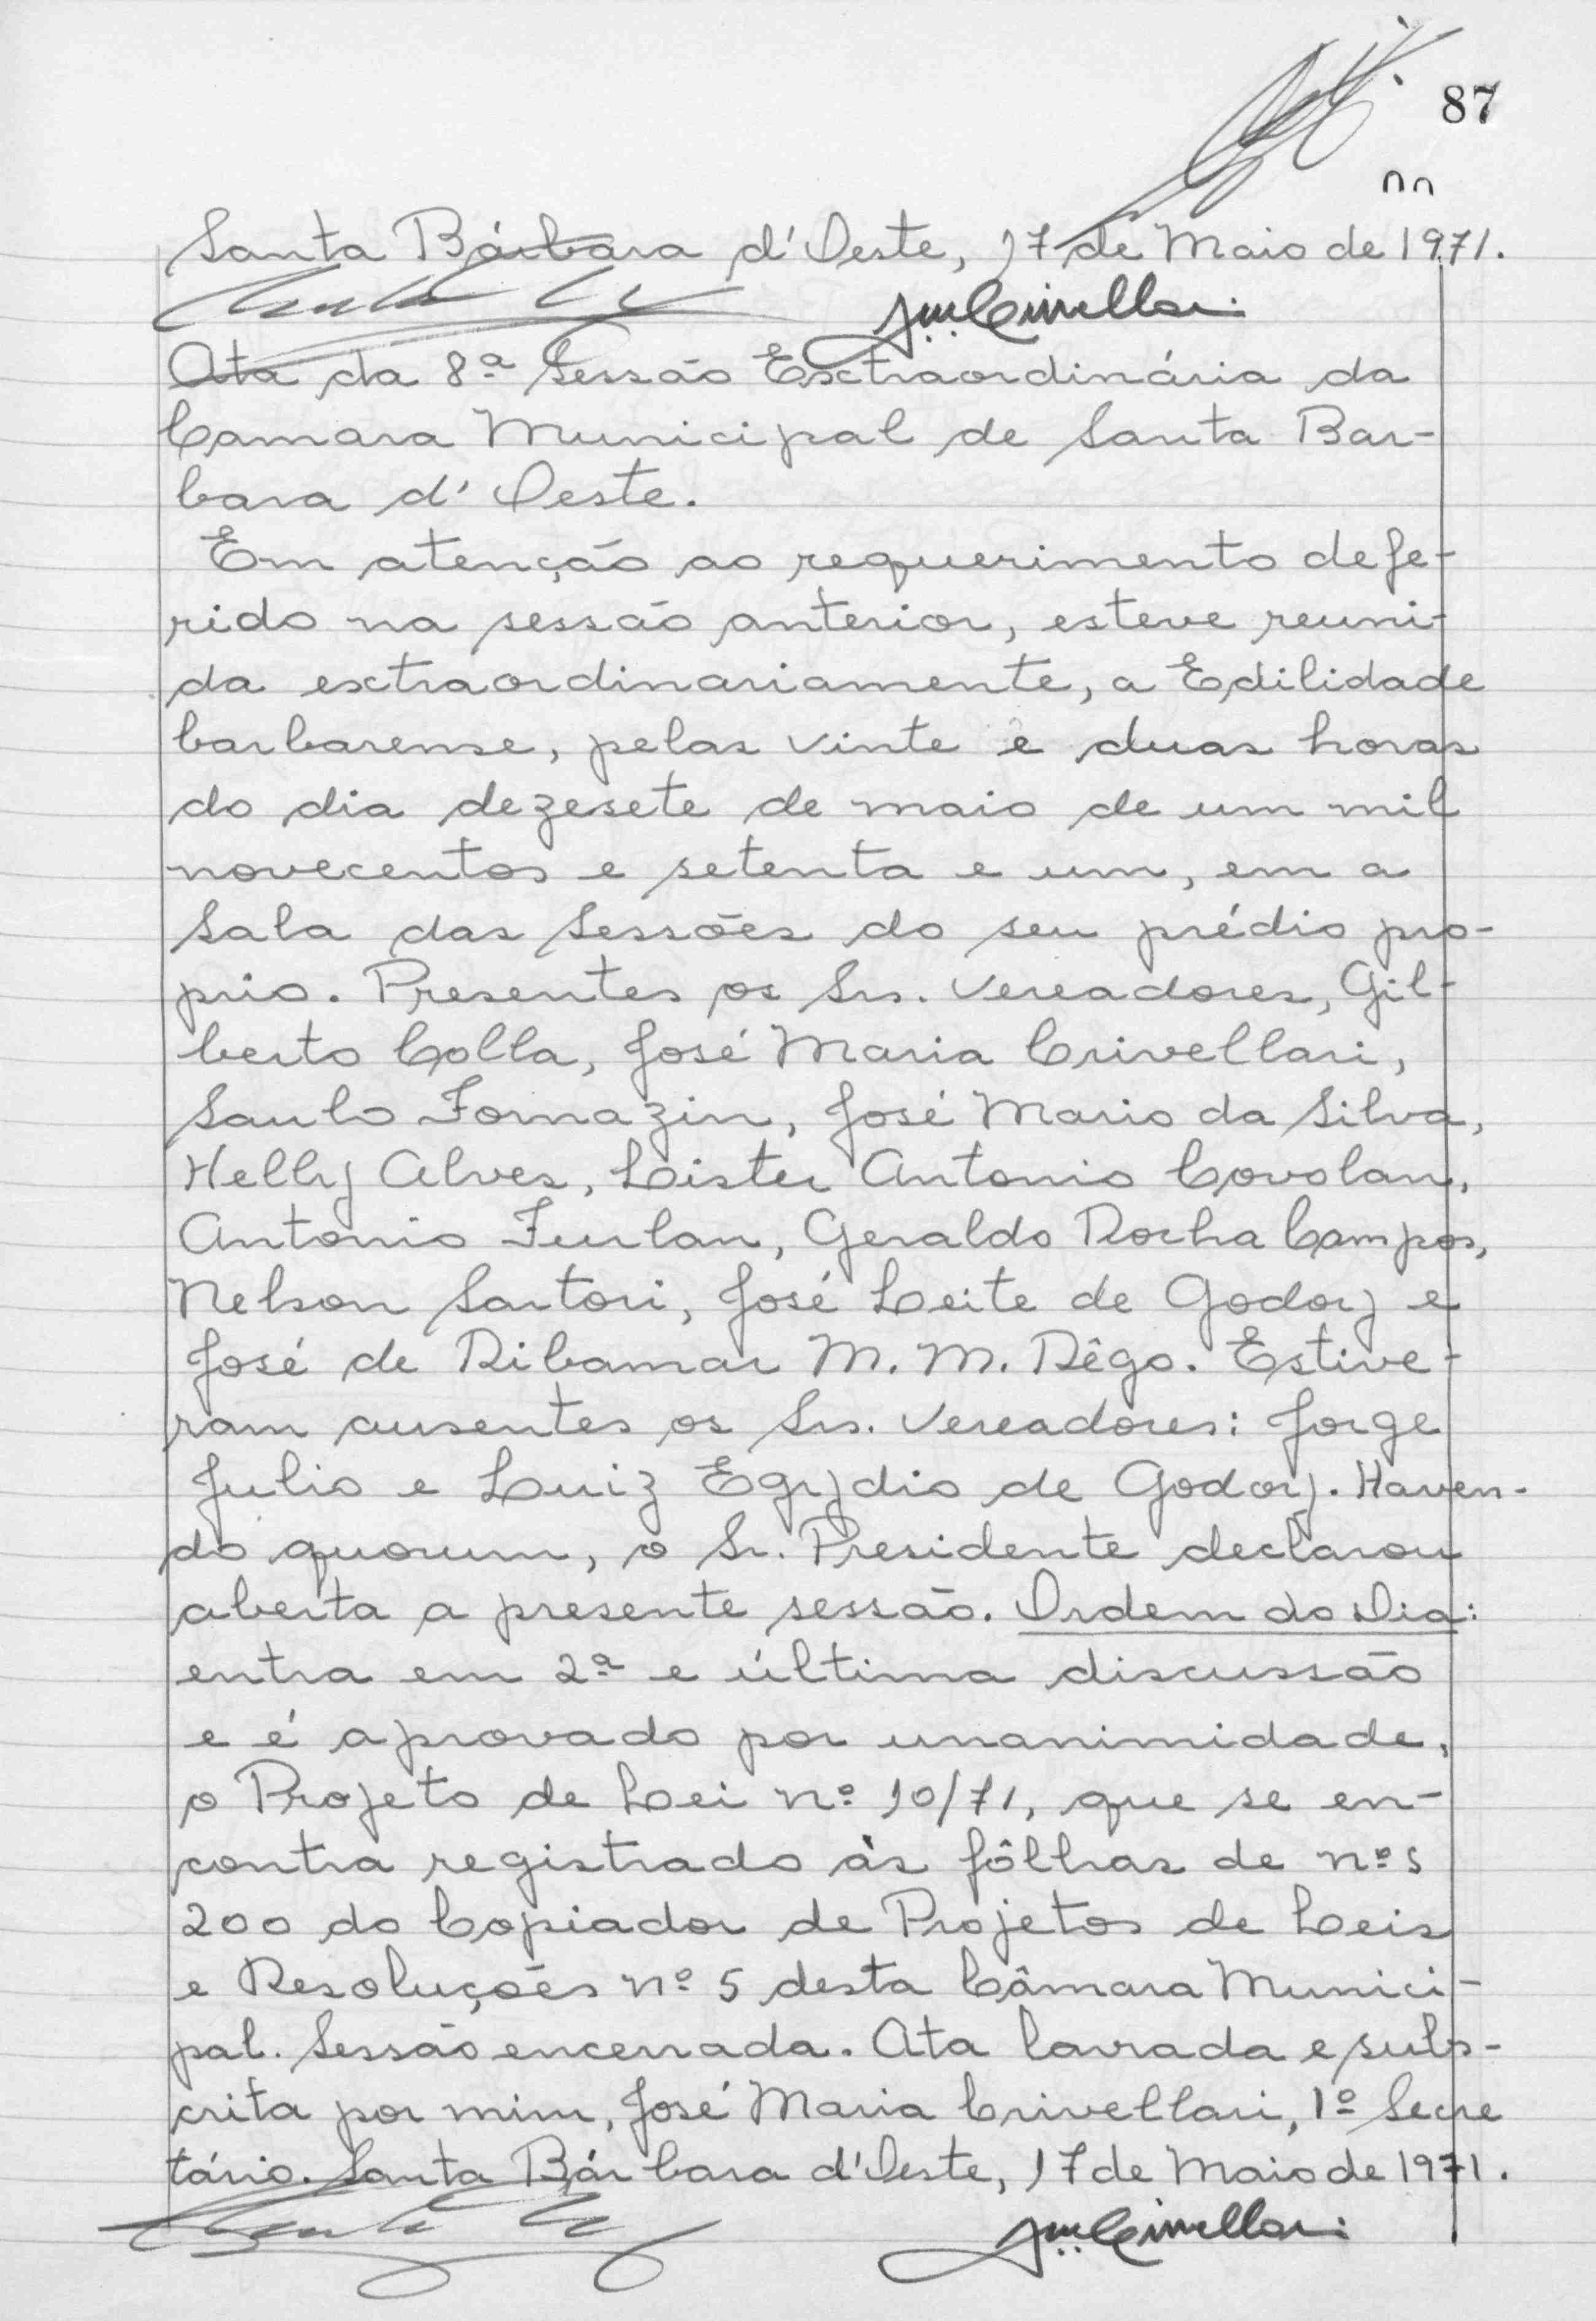 87
Santa Bárbara d'Oeste, 17 de Maio de 1971.
Ata da 8ª Sessão Extraordinária da
Camara Municipal de Santa Bar-
bara d'Oeste.
Em atenção ao requerimento defe-
rido na sessão anterior, esteve reuni-
da extraordinariamente, a Edilidade
barbarense, pelas vinte e duas horas
do dia dezesete de maio de um mil
novecentos e setenta e um, em a
Sala das Sessões do seu prédio pro-
prio. Presentes os Srs. Vereadores, Gil-
berto Colla, José Maria Crivellari,
Saulo Fornazin, José Mario da Silva,
Helly Alves, Lister Antonio Covolan,
Antonio Furlan, Geraldo Rocha Campos,
Nelson Sartori, José Leite de Godoy e
José de Ribamar M. M. Rêgo. Estive-
ram ausentes os Srs. Vereadores: Jorge
Julio e Luiz Egydio de Godoy. Haven-
do quorum, o Sr. Presidente declarou
aberta a presente sessão. Ordem do Dia:
entra em 2ª e última discussão
e é aprovado por unanimidade,
o Projeto de Lei nº 10/71, que se en-
contra registrado às fôlhas de nºs
200 do Copiador de Projetos de Leis
e Resoluções nº 5 desta Câmara Munici-
pal. Sessão encerrada. Ata lavrada e subs-
crita por mim, José Maria Crivellari, 1º Secre
tário. Santa Bárbara d'Oeste, 17 de Maio de 1971.